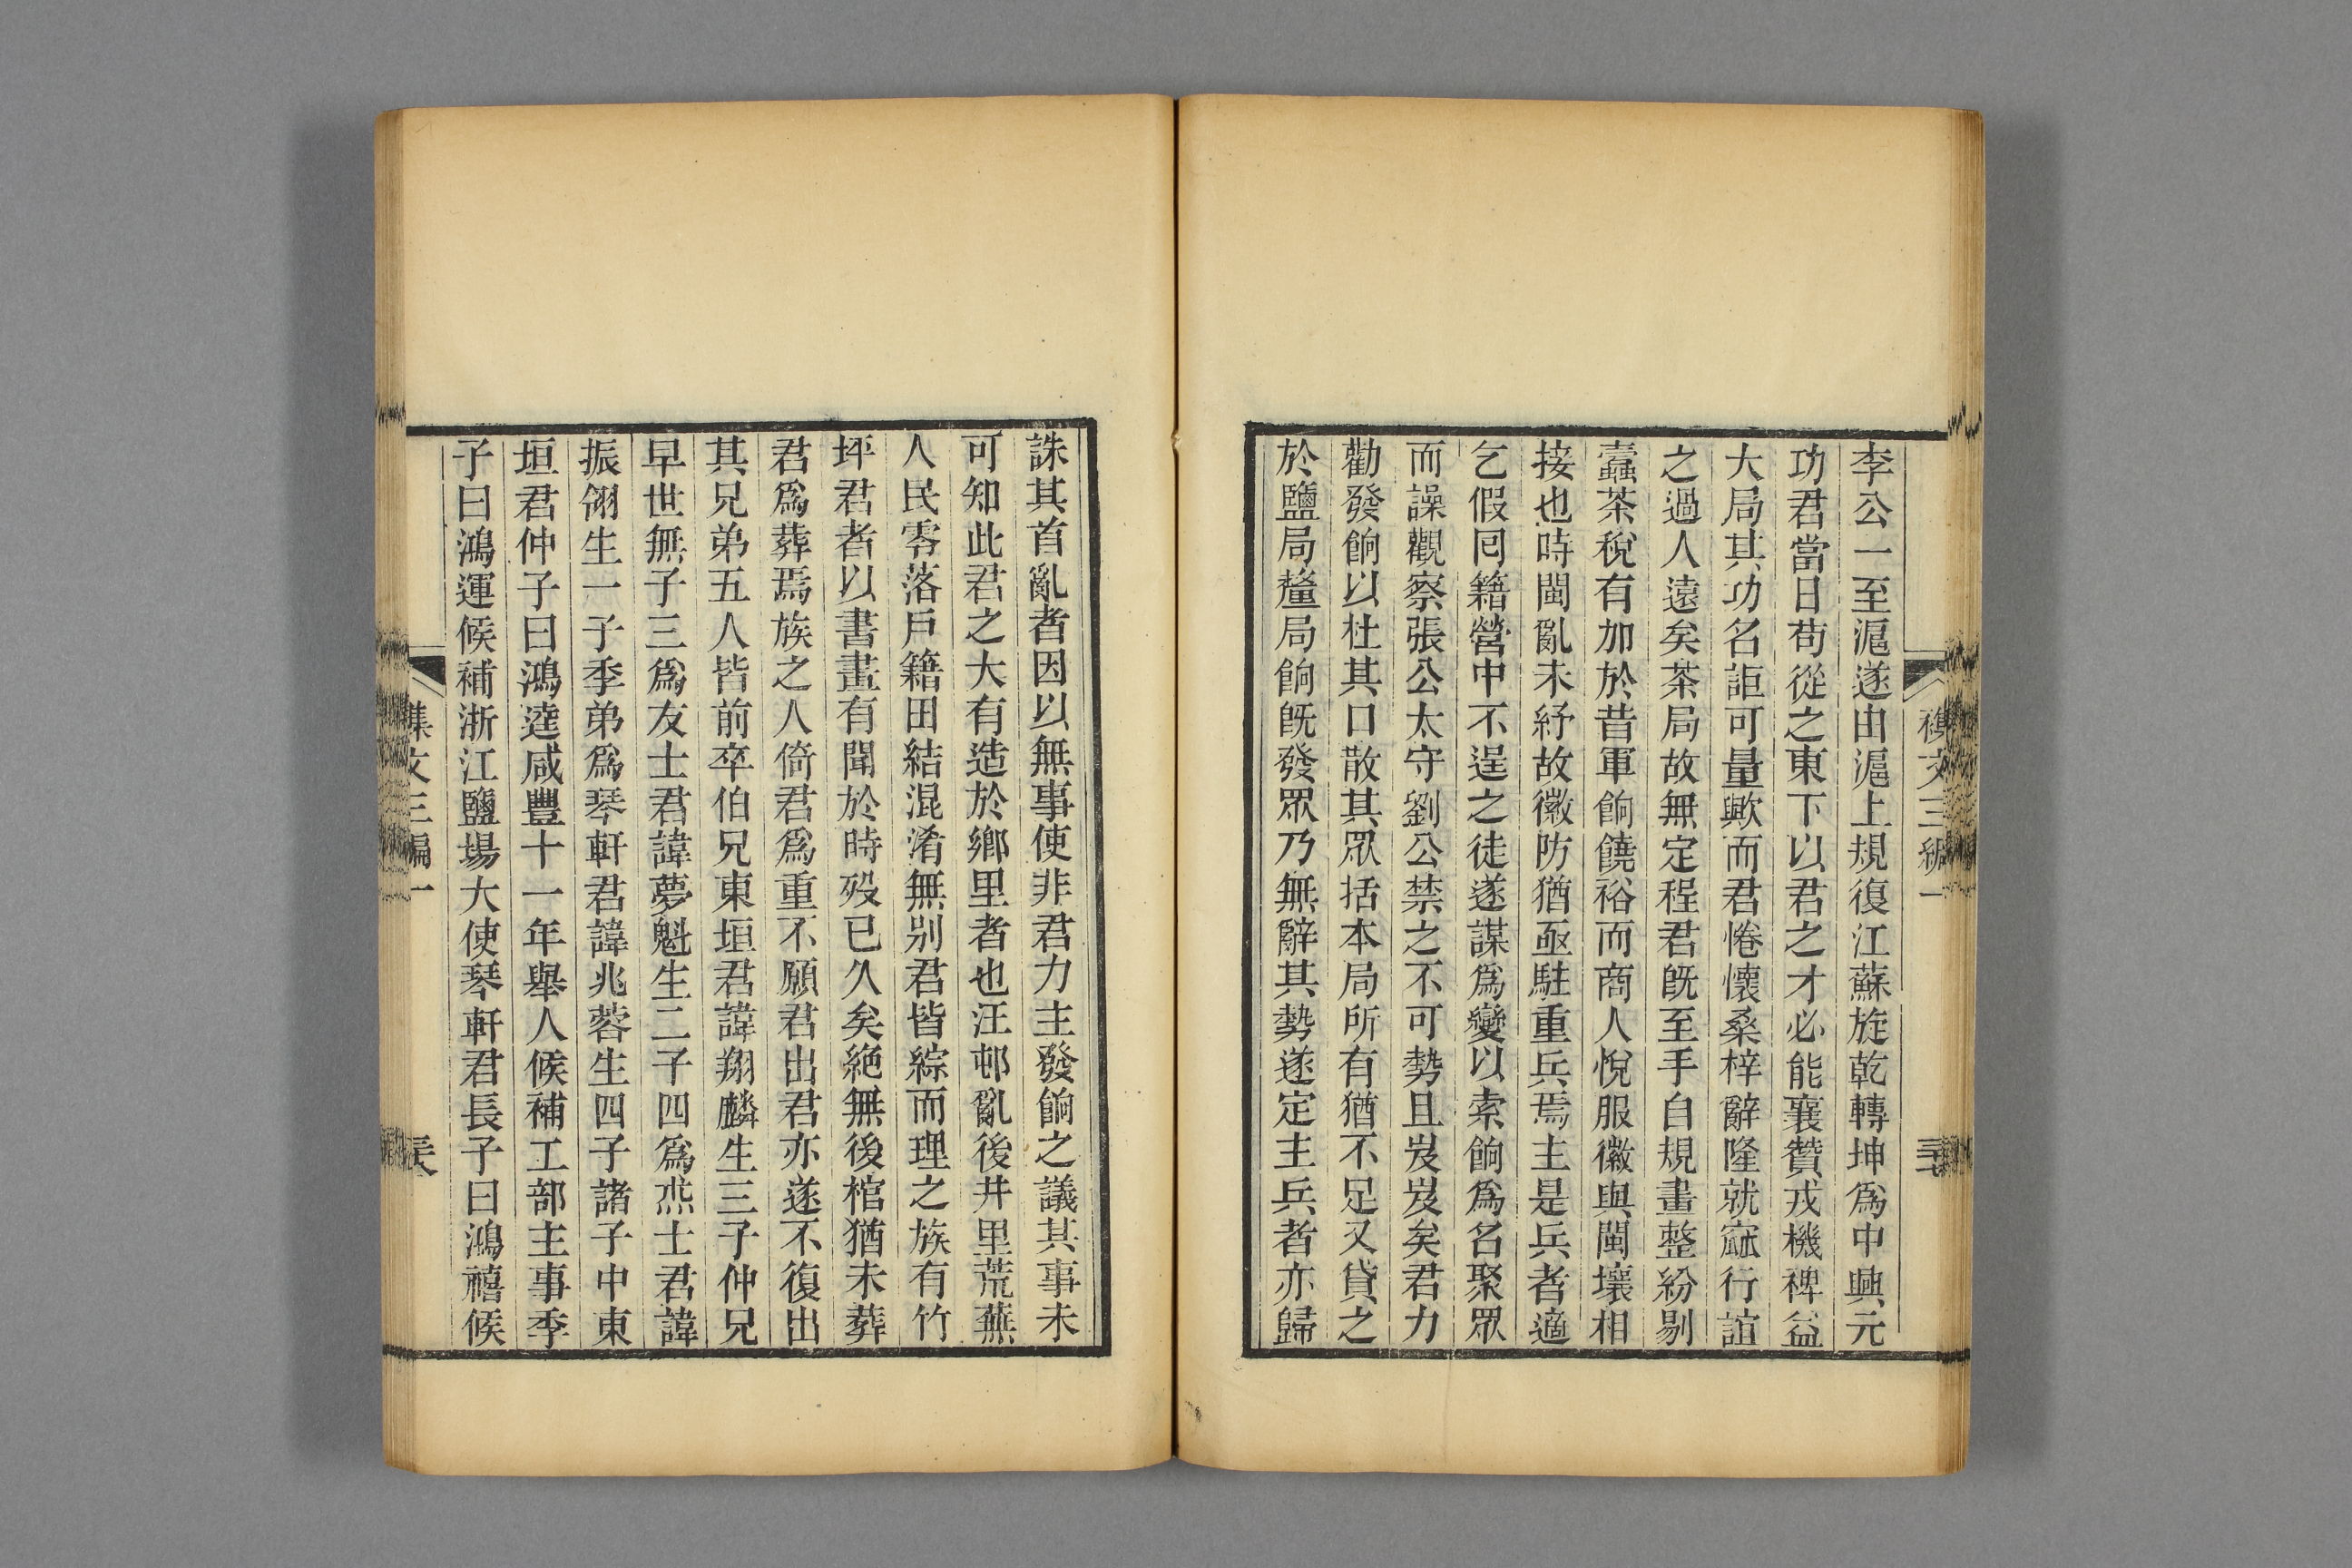 李公一至滬遂由滬上規復江蘇旋乾轉坤爲中興元
功君當日苟從之東下以君之才必能襄贊戎機裨益
大局其功名詎可量歟而君惓懷桑梓辭隆就窳行誼
之過人遠矣茶局故無定程君既至手自規畫整紛剔
蠹茶稅有加於昔軍餉饒裕而商人悅服徽與閩壤相
接也時閩亂未紓故徽防猶亟駐重兵焉主是兵者適
乞假囘籍營中不逞之徒遂謀爲變以索餉爲名聚眾
而譟觀察張公太守劉公禁之不可勢且岌岌矣君力
勸發餉以杜其口散其眾括本局所有猶不足又貸之
於鹽局釐局餉既發眾乃無辭其勢遂定主兵者亦歸
誅其首亂者因以無事使非君力主發餉之議其事未
可知此君之大有造於鄉里者也汪邨亂後井里荒蕪
人民零落戶籍田結混淆無别君皆綜而理之族有竹
坪君者以書畫有聞於時歿已久矣絶無後棺猶未葬
君爲葬焉族之人倚君爲重不願君出君亦遂不復出
其兄弟五人皆前卒伯兄東垣君諱翔麟生三子仲兄
早世無子三爲友士君諱夢魁生二子四爲燕士君諱
振翎生一子季弟爲琴軒君諱兆蓉生四子諸子中東
垣君仲子曰鴻逵咸豐十一年舉人候補工部主事季
子曰鴻運候補浙江鹽場大使琴軒君長子曰鴻禧候